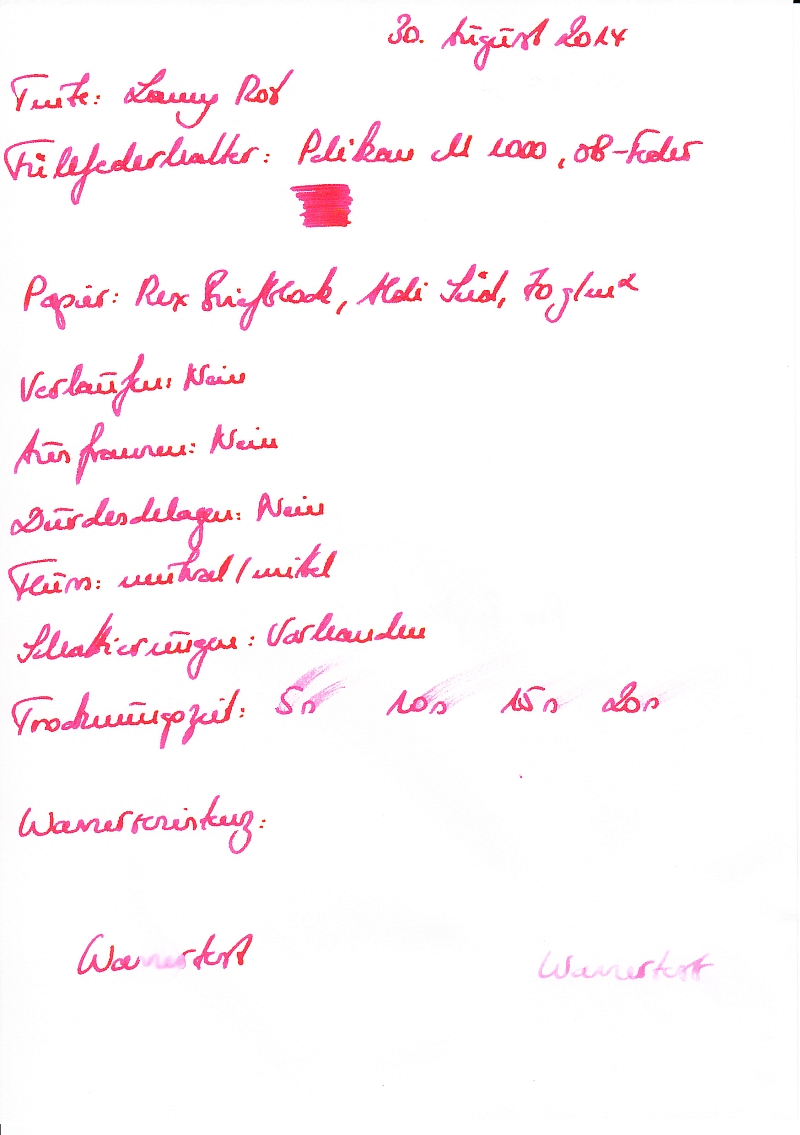 30. August 2014
Tinte: Lamy Rot
Füllfederhalter: Pelikan M 1000, OB-Feder
Papier: Rex Briefblock, Aldi Süd, 70 g/m²
Verlaufen: Nein
Ausfransen: Nein
Durchschlagen: Nein
Fluss: neutral/mittel
Schattierungen: Vorhanden
Trocknungszeit: 5s 10s 15s 20s
Wasserresistenz:
Wassertest Wassertest